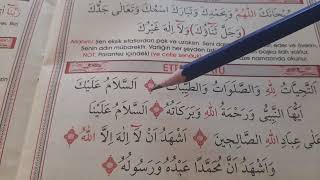 سُبْحَانَكَ اللّٰهُمَّ وَبِحَمْدِكَ وَتَبَارَكَ اسْمُكَ وَتَعَالٰى جَدُّكَ
(وَجَلَّ ثَنَاؤُكَ) وَلَا اِلٰهَ غَيْرُكَ
eksik sıfatlardan pak ve uzaksın
Senin adın mübarektir. Varlığın her şeyden
NOT: Parantez içindeki
اَلتَّحِيَّاتُ لِلّٰهِ وَالصَّلَوَاتُ وَالطَّيِّبَاتُ اَلسَّلَامُ عَلَيْكَ
اَيُّهَا النَّبِيُّ وَرَحْمَةُ اللّٰهِ وَبَرَكَاتُهُ اَلسَّلَامُ عَلَيْنَا
وَعَلٰى عِبَادِ اللّٰهِ الصَّالِحِينَ اَشْهَدُ اَنْ لَا اِلٰهَ اِلَّا اللّٰهُ
وَاَشْهَدُ اَنَّ مُحَمَّدًا عَبْدُهُ وَرَسُولُهُ